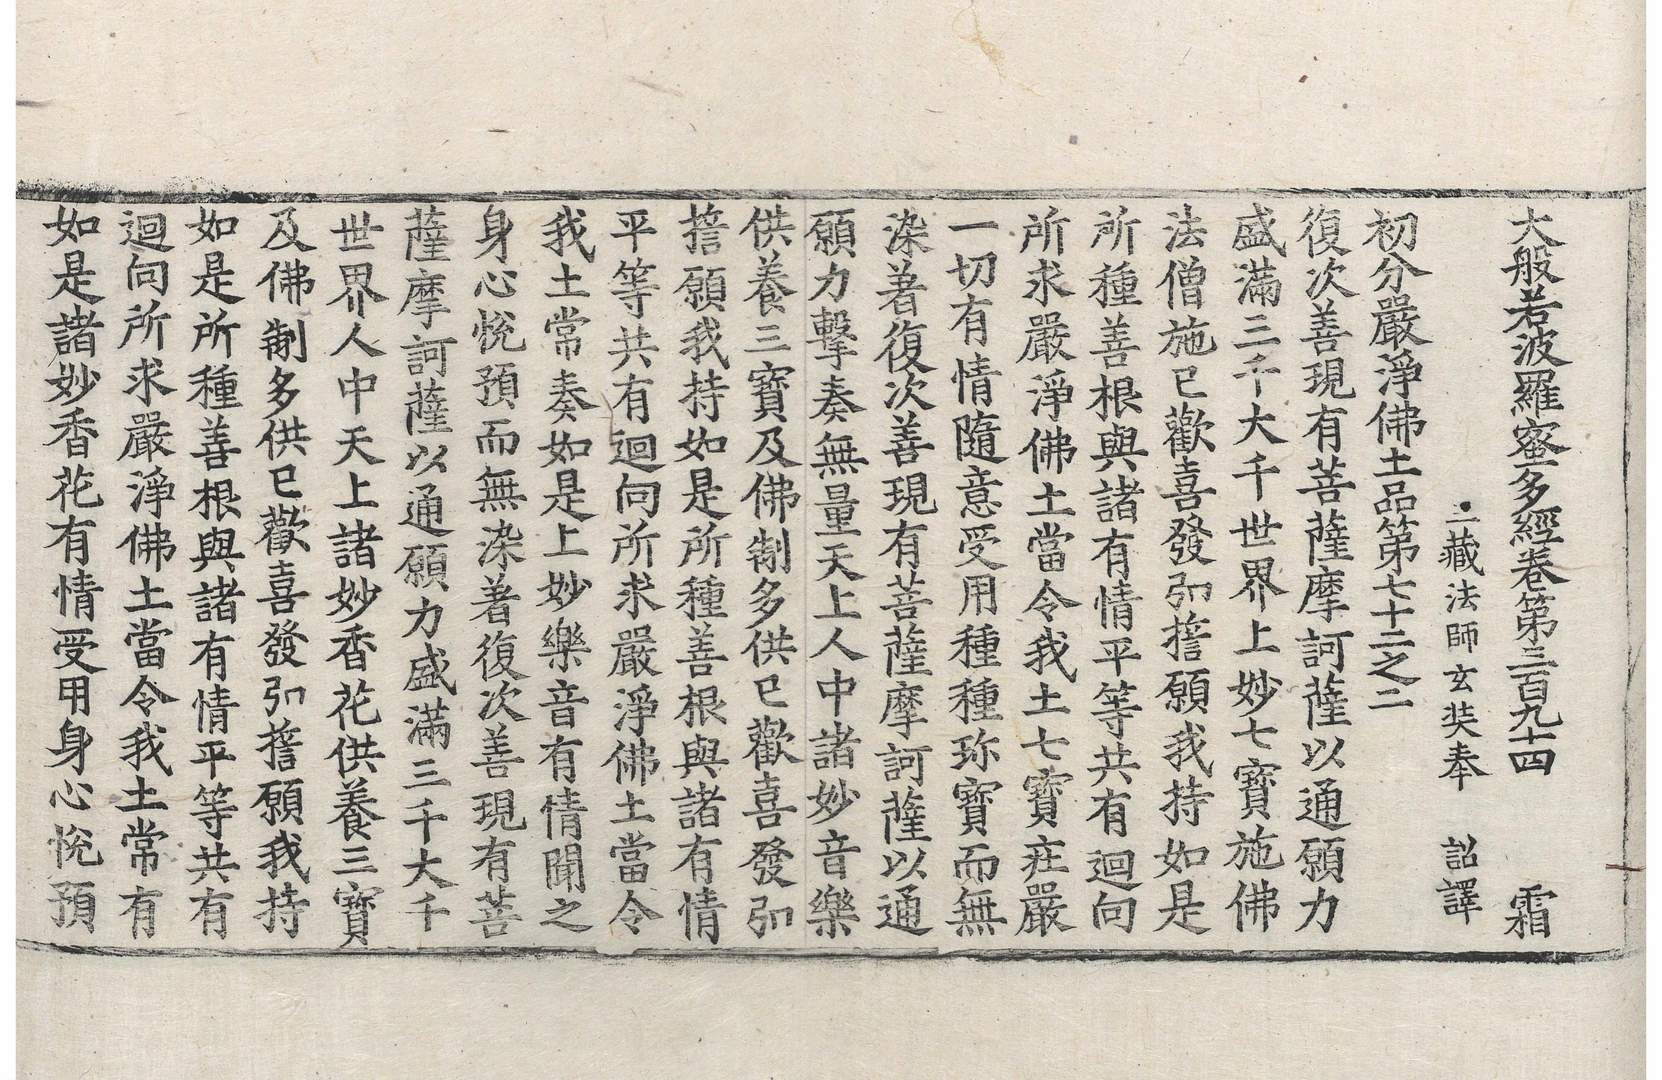 大般若波羅蜜多經卷第三百九十四 霜
三藏法師玄奘奉 詔譯
初分嚴淨佛土品第七十二之二
復次善現有菩薩摩訶薩以通願力
盛滿三千大千世界上妙七寶施佛
法僧施已歡喜發弘誓願我持如是
所種善根與諸有情平等共有迴向
所求嚴淨佛土當令我土七寶莊嚴
一切有情隨意受用種種珎寶而無
染著復次善現有菩薩摩訶薩以通
願力擊奏無量天上人中諸妙音樂
供養三寶及佛制多供已歡喜發弘
誓願我持如是所種善根與諸有情
平等共有迴向所求嚴淨佛土當令
我土常奏如是上妙樂音有情聞之
身心悅預而無染著復次善現有菩
薩摩訶薩以通願力盛滿三千大千
世界人中天上諸妙香花供養三寶
及佛制多供已歡喜發弘誓願我持
如是所種善根與諸有情平等共有
迴向所求嚴淨佛土當令我土常有
如是諸妙香花有情受用身心悅預